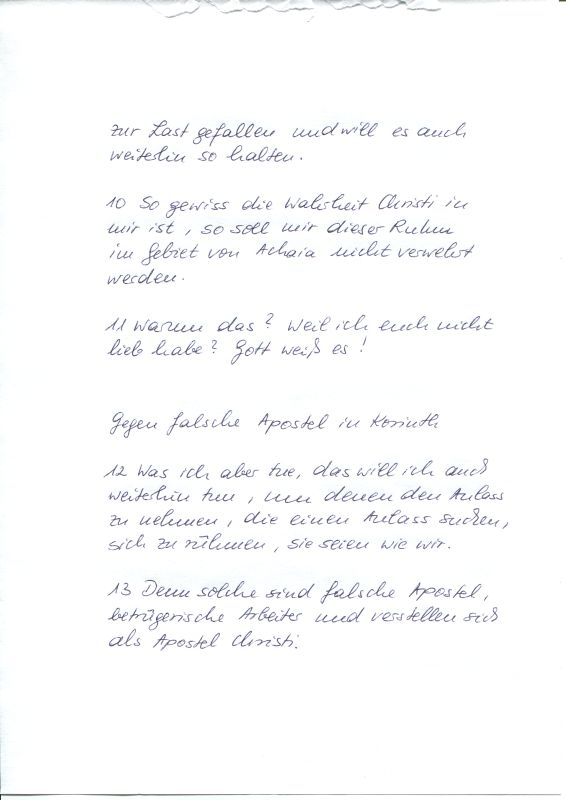 zur Last gefallen und will es auch
weiterhin so halten.
10 So gewiss die Wahrheit Christi in
mir ist, so soll mir dieser Ruhm
im Gebiet von Achaia nicht verwehrt
werden.
11 Warum das? Weil ich euch nicht
lieb habe? Gott weiß es!
Gegen falsche Apostel in Korinth
12 Was ich aber tue, das will ich auch
weiterhin tun, um denen den Anlass
zu nehmen, die einen Anlass suchen,
sich zu rühmen, sie seien wie wir.
13 Denn solche sind falsche Apostel,
betrügerische Arbeiter und verstellen sich
als Apostel Christi.